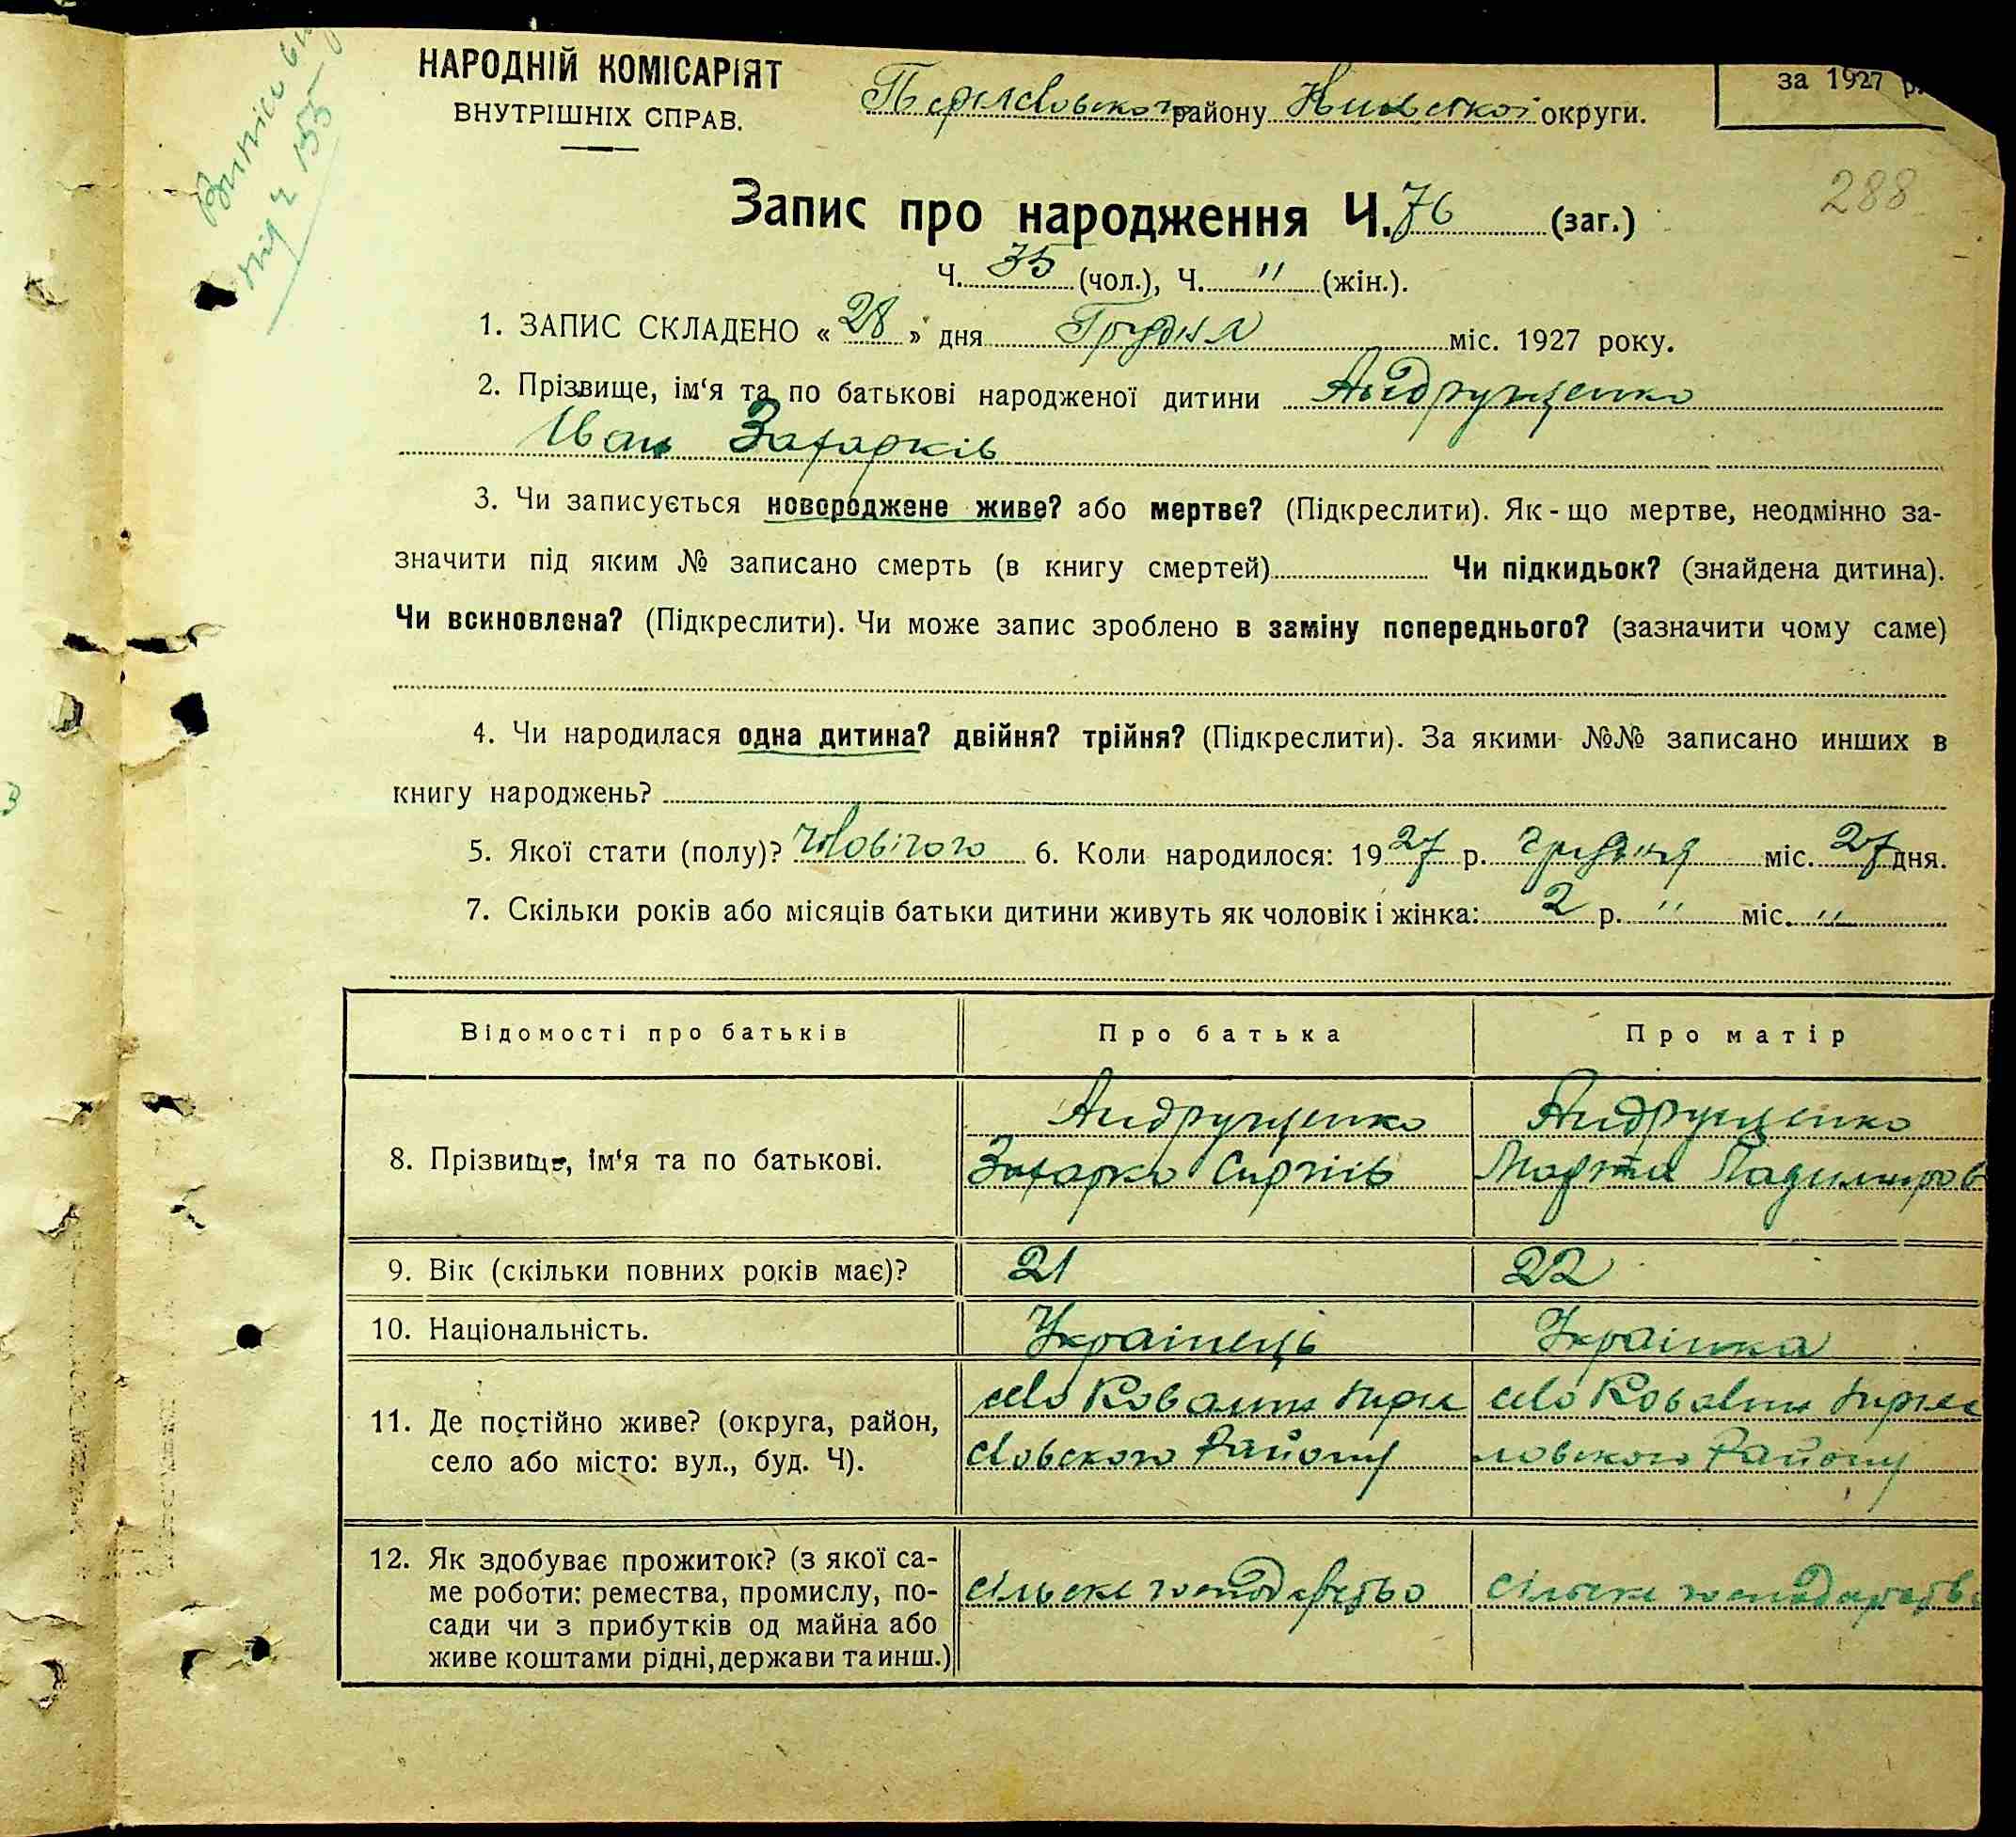 НАРОДНІЙ КОМІСАРІЯТ
ВНУТРІШНІХ СПРАВ.
району округи.
за 1927 р.
288
Запис про народження Ч. 76 (заг.)
Ч. 35 (чол.), Ч. " (жін.).
1. ЗАПИС СКЛАДЕНО « 28 » дня Грудня міс. 1927 року.
2. Прізвище, ім'я та по батькові народженої дитини Андрущенко
Іван Захарків
3. Чи записується новороджене живе? або мертве? (Підкреслити). Як-що мертве, неодмінно за-
значити під яким № записано смерть (в книгу смертей) Чи підкидьок? (знайдена дитина).
Чи всиновлена? (Підкреслити). Чи може запис зроблено в заміну попереднього? (зазначити чому саме)
4. Чи народилася одна дитина? двійня? трійня? (Підкреслити). За якими №№ записано инших в
книгу народжень?
5. Якої стати (полу)? чловічого 6. Коли народилося: 1927 р. грудня міс. 27 дня.
7. Скільки років або місяців батьки дитини живуть як чоловік і жінка: 2 р. " міс. "
Відомості про батьків Про батька Про матір
8. Прізвище, ім'я та по батькові.
Андрущенко
Захарко Сиргіїв
Андрущенко
Марта
9. Вік (скільки повних років має)? 21 22
10. Національність. Українець Українка
11. Де постійно живе? (округа, район,
село або місто: вул., буд. Ч).
село Ковалин
словского Району
село Ковалин
ловского Району
12. Як здобуває прожиток? (з якої са-
ме роботи: ремества, промислу, по-
сади чи з прибутків од майна або
живе коштами рідні, держави та инш.)
сільске господарство
сільске господарство
під ч 155